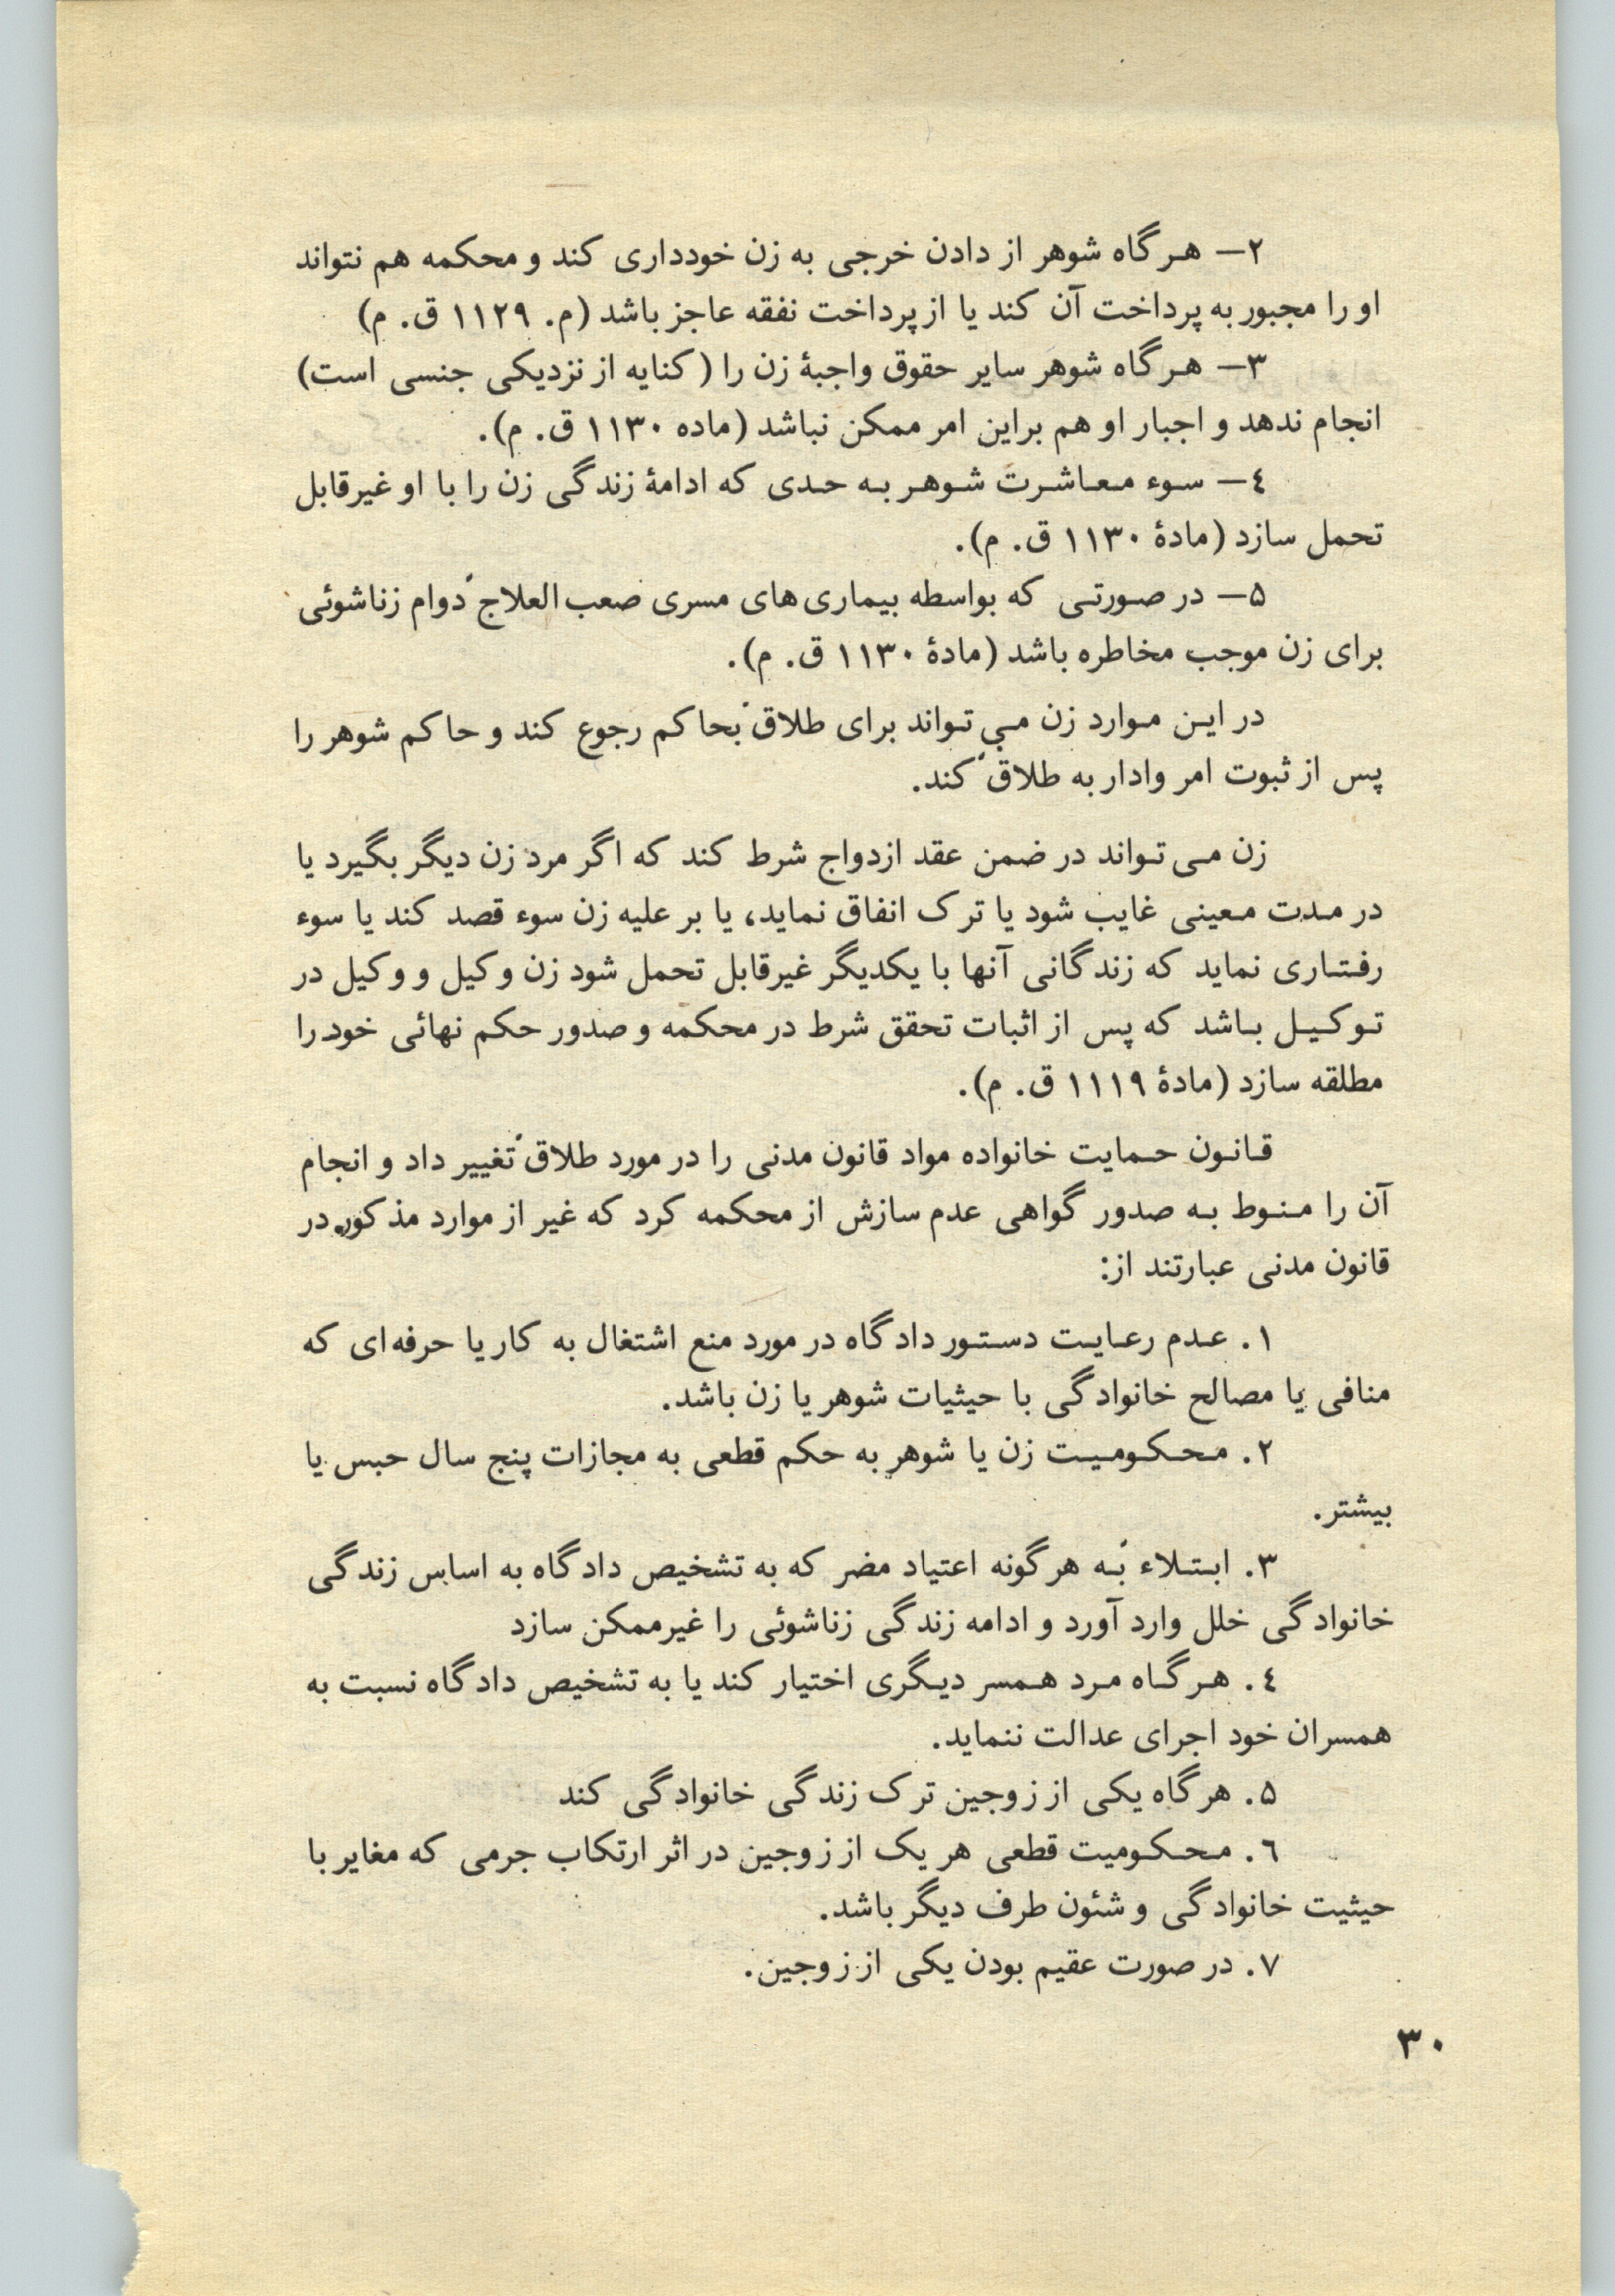 ۲— هرگاه شوهر از دادن خرجی به زن خودداری کند و محکمه هم نتواند
او را مجبور به پرداخت آن کند یا از پرداخت نفقه عاجز باشد (م. ۱۱۲۹ ق. م)
۳— هرگاه شوهر سایر حقوق واجبۀ زن را (کنایه از نزدیکی جنسی است)
انجام ندهد و اجبار او هم براین امر ممکن نباشد (ماده ۱۱۳۰ ق. م).
٤— سوء معاشرت شوهر به حدی که ادامۀ زندگی زن را با او غیرقابل
تحمل سازد (مادۀ ۱۱۳۰ ق. م).
۵— در صورتی که بواسطه بیماری‌های مسری صعب‌العلاج دوام زناشوئی
برای زن موجب مخاطره باشد (مادۀ ۱۱۳۰ ق. م).
در این موارد زن می‌تواند برای طلاق بحاکم رجوع کند و حاکم شوهر را
پس از ثبوت امر وادار به طلاق کند.
زن می‌تواند در ضمن عقد ازدواج شرط کند که اگر مرد زن دیگر بگیرد یا
در مدت معینی غایب شود یا ترک انفاق نماید، یا بر علیه زن سوء قصد کند یا سوء
رفتاری نماید که زندگانی آنها با یکدیگر غیرقابل تحمل شود زن وکیل و وکیل در
توکیل باشد که پس از اثبات تحقق شرط در محکمه و صدور حکم نهائی خود را
مطلقه سازد (مادۀ ۱۱۱۹ ق. م).
قانون حمایت خانواده مواد قانون مدنی را در مورد طلاق تغییر داد و انجام
آن را منوط به صدور گواهی عدم سازش از محکمه کرد که غیر از موارد مذکور در
قانون مدنی عبارتند از:
۱. عدم رعایت دستور دادگاه در مورد منع اشتغال به کار یا حرفه‌ای که
منافی یا مصالح خانوادگی با حیثیات شوهر یا زن باشد.
۲. محکومیت زن یا شوهر به حکم قطعی به مجازات پنج سال حبس یا
بیشتر.
۳. ابتلاء به هرگونه اعتیاد مضر که به تشخیص دادگاه به اساس زندگی
خانوادگی خلل وارد آورد و ادامه زندگی زناشوئی را غیرممکن سازد
٤. هرگاه مرد همسر دیگری اختیار کند یا به تشخیص دادگاه نسبت به
همسران خود اجرای عدالت ننماید.
۵. هرگاه یکی از زوجین ترک زندگی خانوادگی کند
٦. محکومیت قطعی هر یک از زوجین در اثر ارتکاب جرمی که مغایر با
حیثیت خانوادگی و شئون طرف دیگر باشد.
۷. در صورت عقیم بودن یکی از زوجین.
۳۰